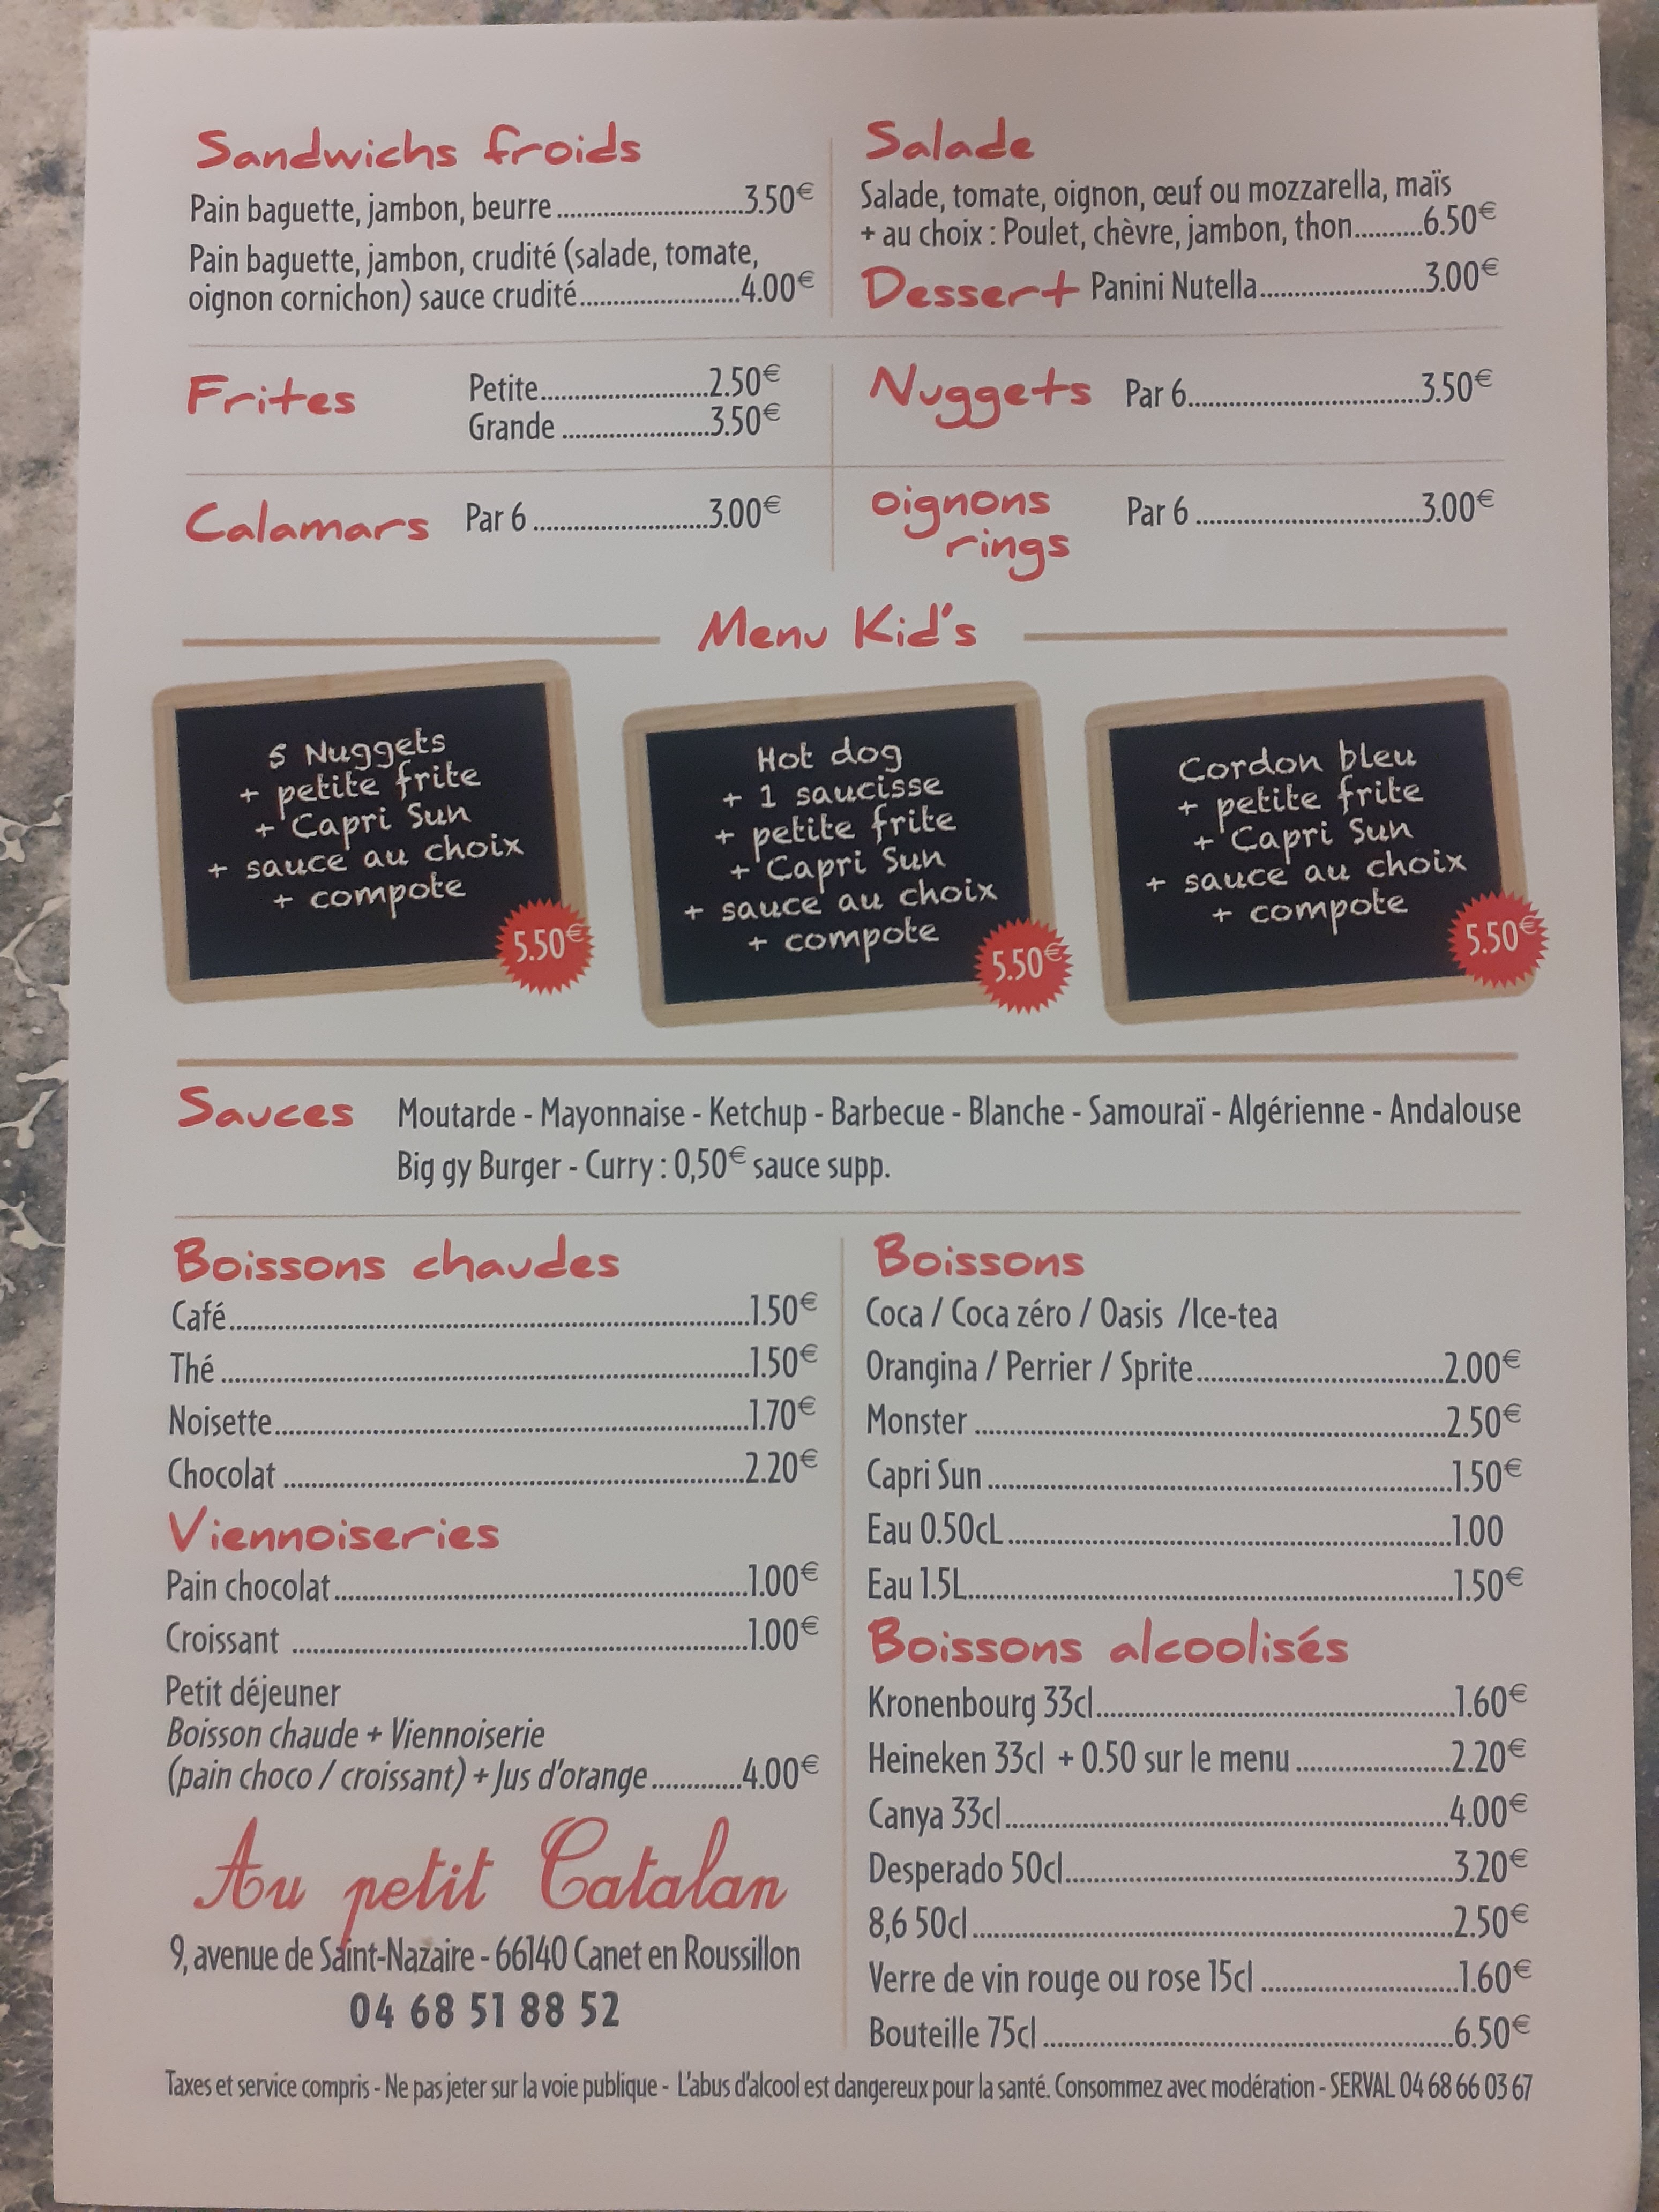 Sandwichs froids
Pain baguette, jambon, beurre ............................3.50€
Pain baguette, jambon, crudité (salade, tomate,
oignon cornichon) sauce crudité........................4.00€
Salade
Salade, tomate, oignon, œuf ou mozzarella, maïs
+ au choix : Poulet, chèvre, jambon, thon..........6.50€
Dessert Panini Nutella........................3.00€
Frites
Petite........................2.50€
Grande ......................3.50€
Nuggets Par 6..................................3.50€
Calamars Par 6 ..........................3.00€
oignons
rings
Par 6 .................................3.00€
Menu Kid's
5 Nuggets
+ petite frite
+ Capri Sun
+ sauce au choix
+ compote
5.50€
Hot dog
+ 1 saucisse
+ petite frite
+ Capri Sun
+ sauce au choix
+ compote
5.50€
Cordon bleu
+ petite frite
+ Capri Sun
+ sauce au choix
+ compote
5.50€
Sauces Moutarde - Mayonnaise - Ketchup - Barbecue - Blanche - Samouraï - Algérienne - Andalouse
Big gy Burger - Curry : 0,50€ sauce supp.
Boissons chaudes
Café..............................................................1.50€
Thé ..............................................................1.50€
Noisette.........................................................1.70€
Chocolat .......................................................2.20€
Viennoiseries
Pain chocolat..................................................1.00€
Croissant .......................................................1.00€
Petit déjeuner
Boisson chaude + Viennoiserie
(pain choco / croissant) + Jus d'orange .............4.00€
Au petit Catalan
9, avenue de Saint-Nazaire - 66140 Canet en Roussillon
04 68 51 88 52
Boissons
Coca / Coca zéro / Oasis /Ice-tea
Orangina / Perrier / Sprite....................................2.00€
Monster ........................................................2.50€
Capri Sun .......................................................1.50€
Eau 0.50cL .....................................................1.00
Eau 1.5L.........................................................1.50€
Boissons alcoolisés
Kronenbourg 33cl..............................................1.60€
Heineken 33cl + 0.50 sur le menu ......................2.20€
Canya 33cl......................................................4.00€
Desperado 50cl................................................3.20€
8,6 50cl .........................................................2.50€
Verre de vin rouge ou rose 15cl ............................1.60€
Bouteille 75cl ..................................................6.50€
Taxes et service compris - Ne pas jeter sur la voie publique - L'abus d'alcool est dangereux pour la santé. Consommez avec modération - SERVAL 04 68 66 03 67